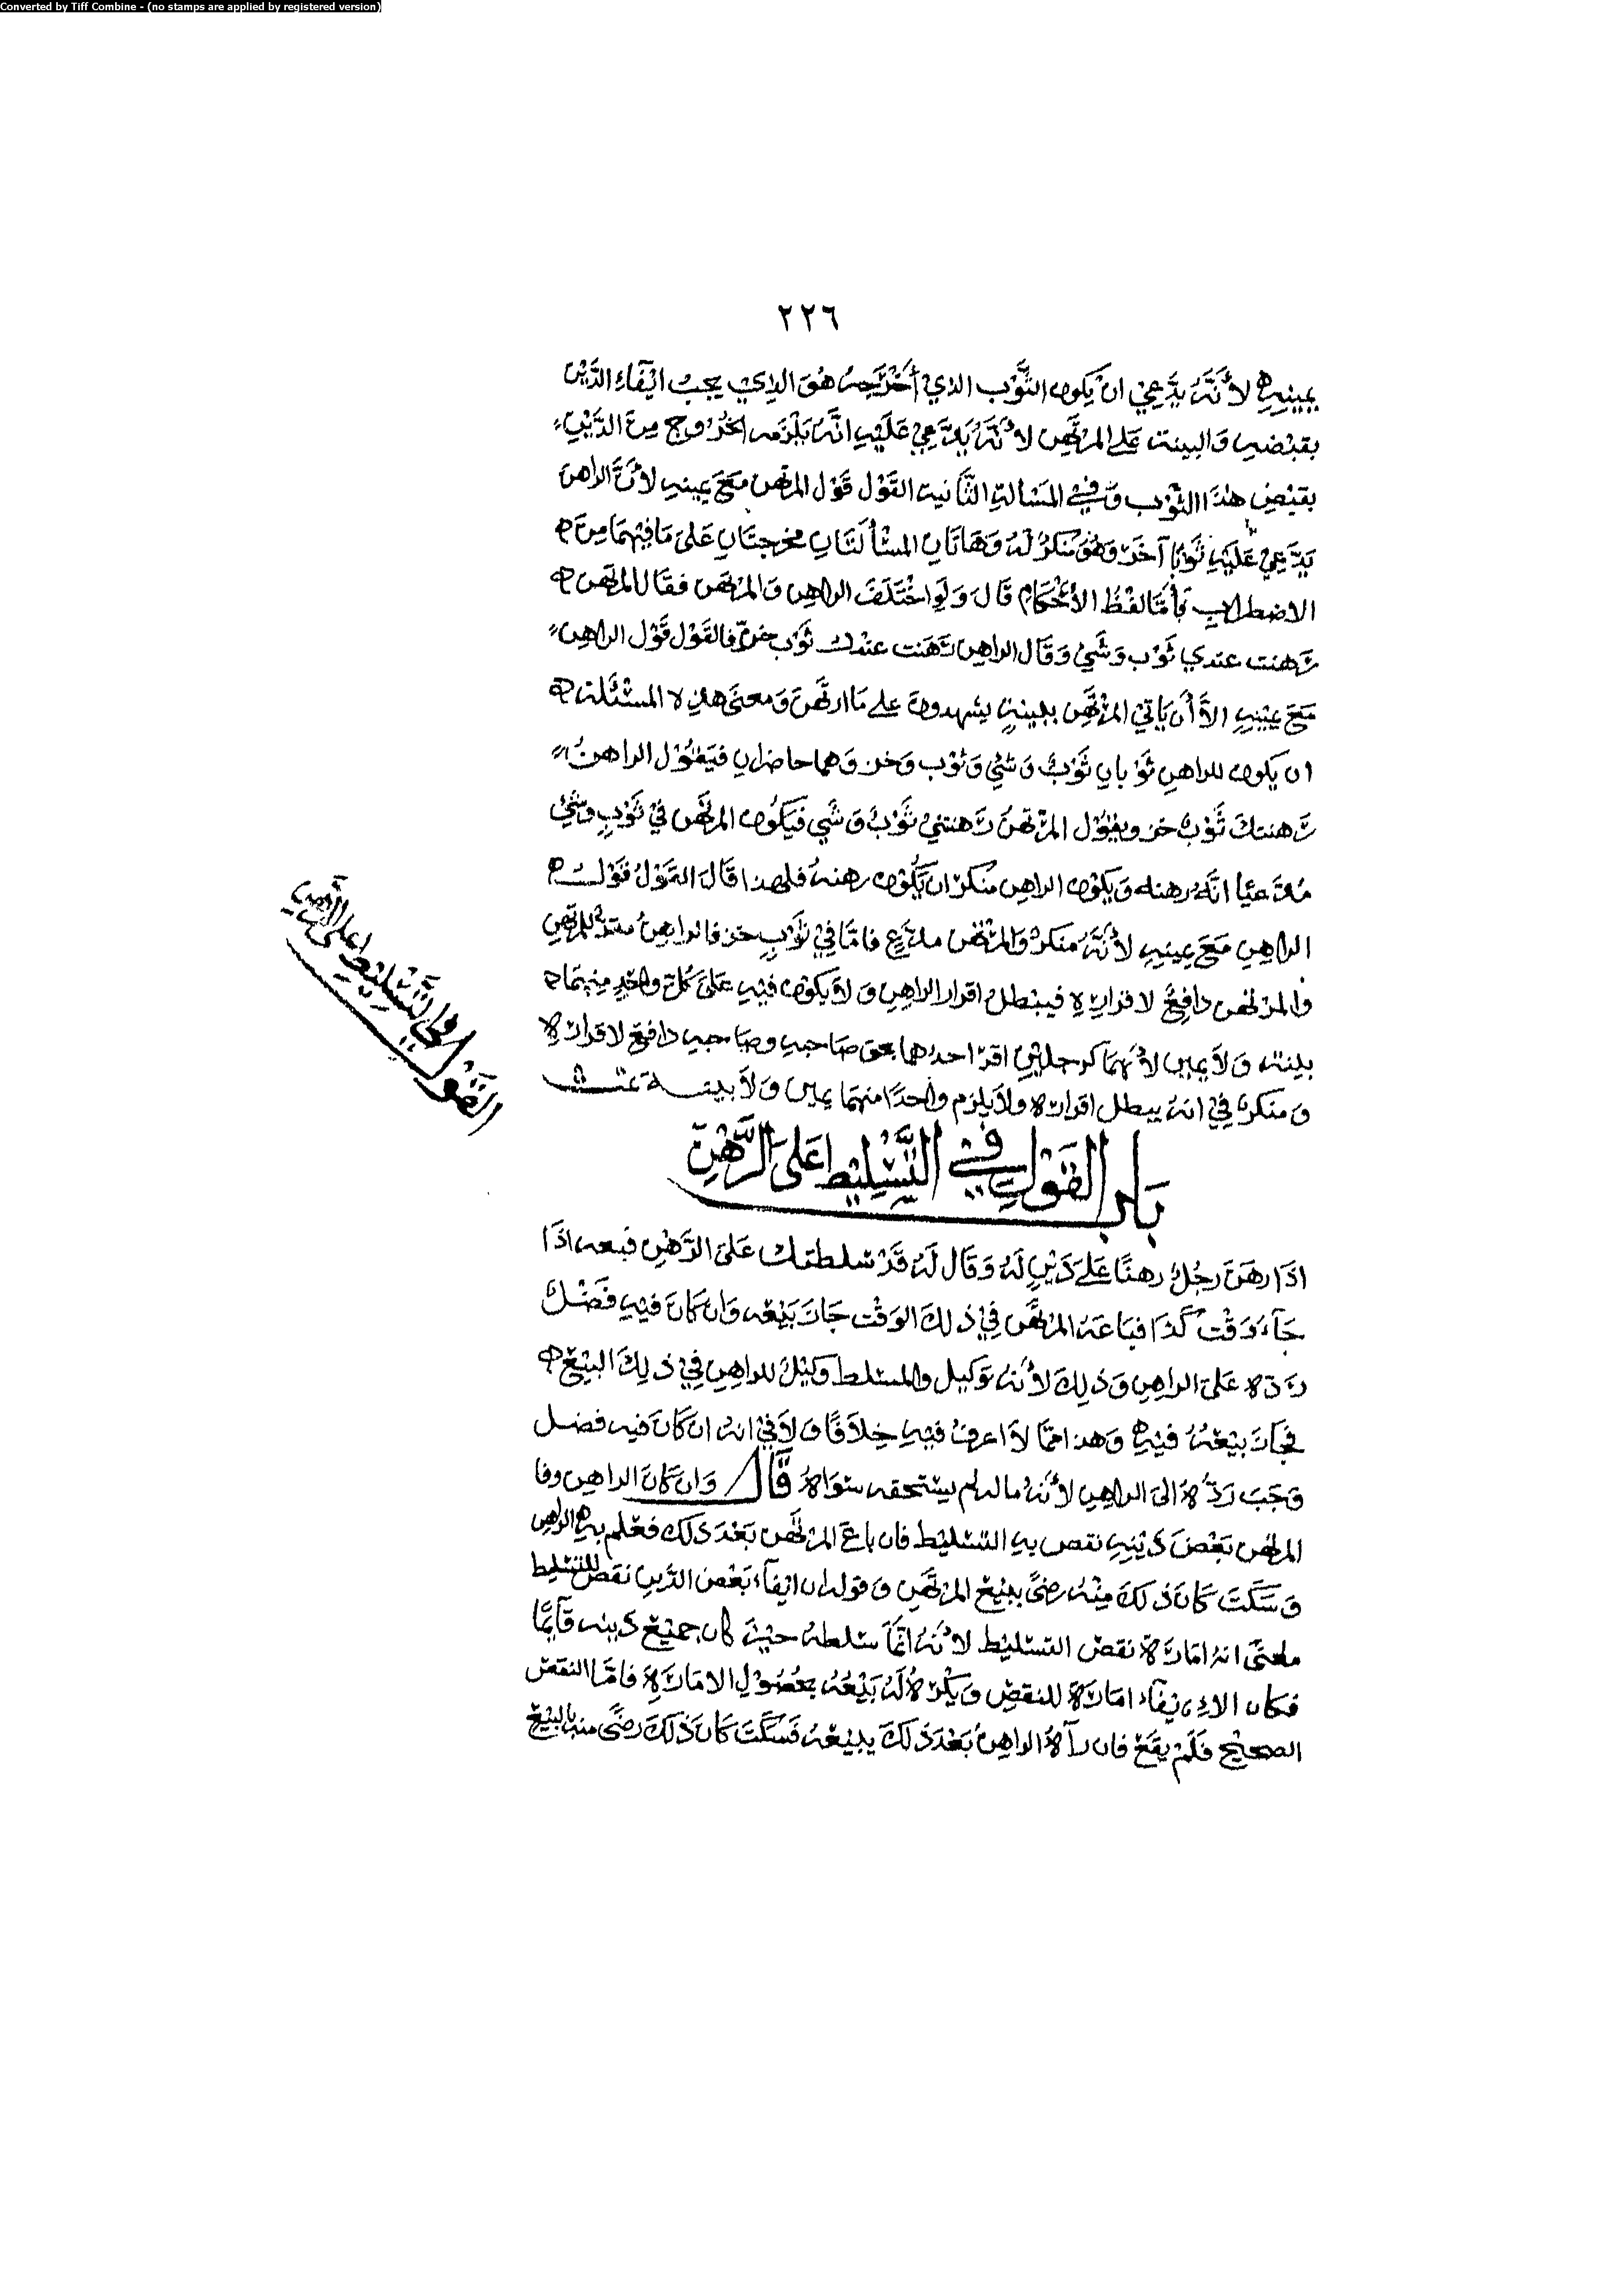 Converted by Tiff Combine - (no stamps are applied by registered version)
٢٢٦
يمينه لأنه يدعي ان يكون الثوب الذي أخرجه هو الذي يجب ايفاء الدين
بقبضه والبينة على المرتهن لأنه يدعي عليه انه يلزمه الخروج من الدين
بقبض هذا الثوب وفي المسألة الثانية القول قول المرتهن مع يمينه لأن الراهن
يدعي عليه ثوبا آخر وهو منكر له وهاتان المسألتان مخرجتان على ما فيهما من
الاضطراب فأما لفظ الأحكام قال ولو اختلف الراهن والمرتهن فقال المرتهن
رهنت عندي ثوب وشي وقال الراهن رهنت عندك ثوب خز فالقول قول الراهن
مع يمينه الا أن ياتي المرتهن ببينة يشهدون على ما ارتهن ومعنى هذه المسئلة
ان يكون للراهن ثوبان ثوب وشي وثوب وخز وهما حاضران فيقول الراهن
رهنتك ثوب خز ويقول المرتهن رهنتني ثوب وشي فيكون المرتهن في ثوب وشي
مدعيا انه رهنه ويكون الراهن منكرا ان يكون رهنه فلهذا قال القول قول
الراهن مع يمينه لأنه منكر والمرتهن مدع فاما في ثوب خز فالراهن مقر للمرتهن
والمرتهن دافع لاقراره فيبطل اقرار الراهن ولا يكون فيه على كل واحد منهما
بينة ولا يمين لأنهما كرجلين اقر احدهما بحق صاحبه وصاحبه دافع لاقراره
ومنكر في انه يبطل اقراره ولا يلزم واحدا منهما يمين ولا بينة
باب القول في التسليط على الرهن
القول في التسليط على الرهن
اذا رهن رجل رهنا على دين له وقال له قد سلطتك على الرهن فبعه اذا
جاء وقت كذا فباعه المرتهن في ذلك الوقت جاز بيعه وان كان فيه فضل
رده على الراهن وذلك لأنه توكيل والمسلط وكيل للراهن في ذلك البيع
فجاز بيعه فيه وهذا مما لا اعرف فيه خلافا ولا في انه ان كان فيه فضل
وجب رده الى الراهن لأنه ماله لم يستحقه سواه قال وان كان الراهن وفا
المرتهن بعض دينه نقص به التسليط فان باع المرتهن بعد ذلك فعلم به الراهن
وسكت كان ذلك منه رضى ببيع المرتهن وقوله ان ايفاء بعض الدين نقض للتسليط
معنى انه امارة نقض التسليط لأنه انما سلطه حيث كان جميع دينه قائما
فكان الايفاء امارة للنقض ويكره له بيعه بحصول الامارة فاما النقض
الصحيح فلم يقع فان رآه الراهن بعد ذلك يبيعه فسكت كان ذلك رضى منه بالبيع